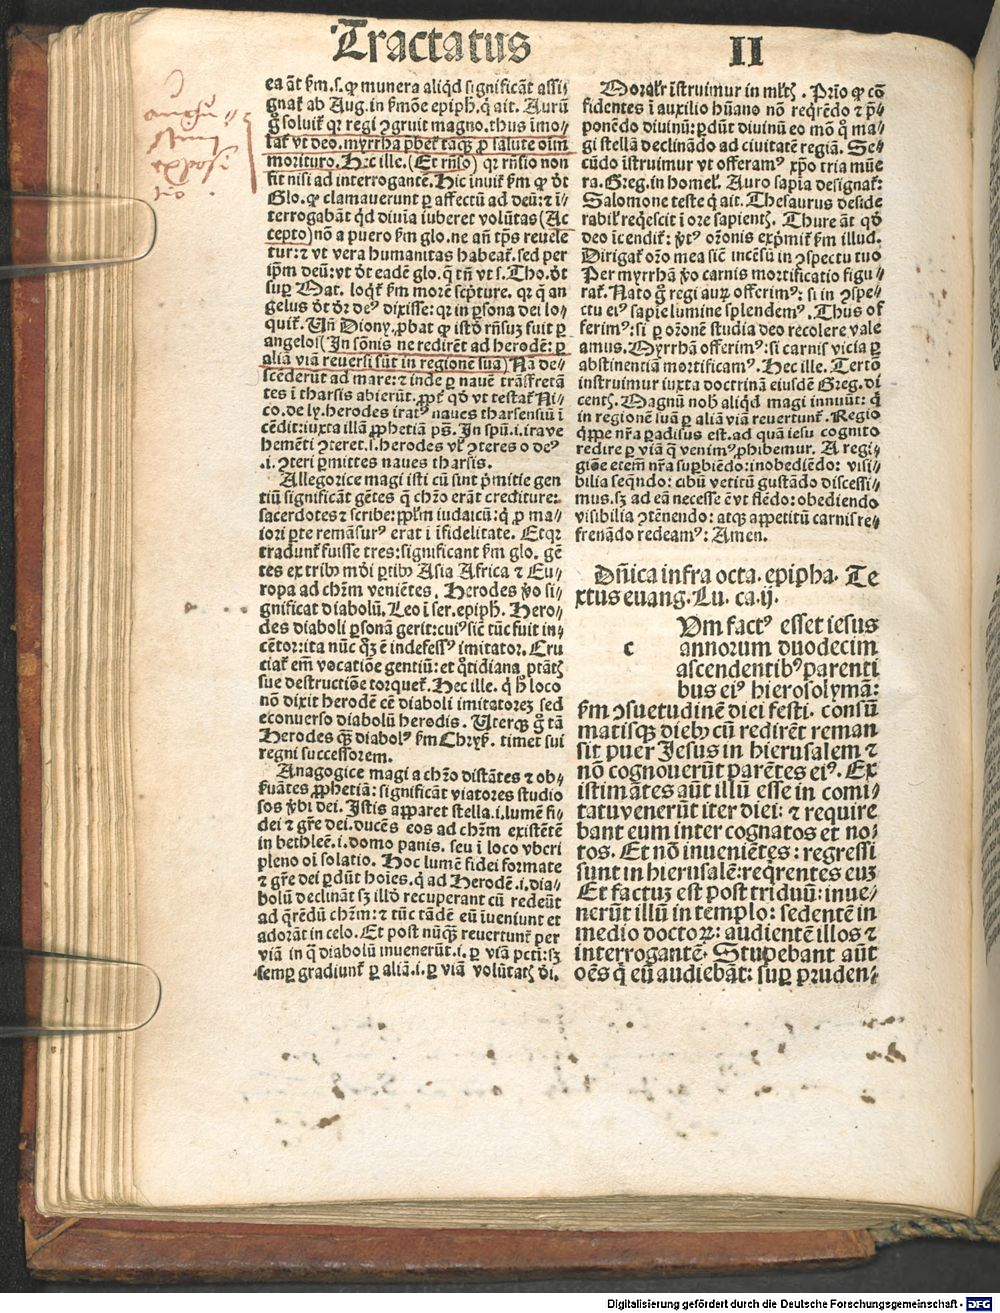 Tractatus II
ea āt ẜm.s.ꝙ munera aliqͩd significāt assi
gnat᷑ ab Aug.in ẜmōe epiph̄.q̄ ait. Aurū
g̊ soluit᷑ qꝛ regi ꝯgruit magno.thus īmo⸗
lat᷑ vt deo.myrrha p̄bet᷑ tāqꝫ ꝓ salute oīm
morituro. Hec ille.(Et rn̄so) qꝛ rn̄sio non
fit nisi ad interrogantē. Hic inuit᷑ ẜm ꝙ dt̄
Glo.ꝙ clamauerunt ꝑ affectū ad deū:⁊ ī⸗
terrogabāt qͩd diuīa iuberet volūtas(Ac
cepto)nō a puero ẜm glo.ne an̄ tp̄s reuele
tur:⁊ vt vera humanitas habeat᷑.sed per
ip̄m deū:vt dt̄ eadē glo.q̄ tn̄ vt s.Tho.dt̄
suꝑ Mat. loqt᷑ ẜm morē scp̄ture. qꝛ q̄ an
gelus dt̄ dr̄ deꝰ dixisse: qꝛ in ꝑsona dei lo⸗
quit᷑. Vn̄ Diony.ꝓbat ꝙ istd̊ rn̄suꝫ fuit ꝑ
angelos(In sōnis ne redirēt ad herodē: ꝑ
aliā viā reuersi sūt in regionē suā) Nā de⸗
scēderūt ad mare:⁊ inde ꝑ nauē trāsfretā
tes ī tharsis abierūt.ꝓpt᷑ qd̊ vt testat᷑ Ni⸗
co.de ly.herodes iratꝰ naues tharsensiū ī
cēdit:iuxta illā ꝓphetiā ps̄. In spū.i.ira ve
hemēti ꝯteret.s.herodes vl᷑ ꝯteres o deꝰ
.i.ꝯteri ꝑmittes naues tharsis.
Allegorice magi isti cū sint p̄mitie gen
tiū significāt gētes q̄ chr̄o erāt crediture:
sacerdotes ⁊ scribe:pp̄lm iudaicū:q̄ ꝓ ma⸗
iori ꝑte remāsurꝰ erat ī īfidelitate. Et qꝛ
tradunt᷑ fuisse tres:significant ẜm glo. gē
tes ex tribꝫ mūdi ꝑtibꝫ Asia Africa ⁊ Eu⸗
ropa ad chr̄m veniētes. Herodes v̊o si⸗
gnificat diabolū. Leo ī ser.epiph̄. Hero⸗
des diaboli ꝑsonā gerit:cuiꝰ sic̄ tūc fuit in⸗
cētor:ita nūc qꝫ̄ ē indefessꝰ imitator. Cru
ciat᷑ em̄ vocatiōe gentiū:et q̄tidiana ptātꝭ
sue destructiōe torquet᷑. Hec ille. q̄ h̄ loco
nō dixit herodē eē diaboli imitatoreꝫ sed
econuerso diabolū herodis. Uterqꝫ g̊ tā
Herodes qꝫ̄ diabolꝰ ẜm Chryẜ. timet sui
regni successorem.
Anagogice magi a chr̄o distātes ⁊ ob⸗
ẜuātes ꝓphetiā: significāt viatores studio
sos v̄bi dei. Istis apparet stella.i.lumē fi⸗
dei ⁊ gr̄e dei.ducēs eos ad chr̄m existētē
in bethleē.i.domo panis. seu ī loco vberi
pleno oī solatio. Hoc lumē fidei formate
⁊ gr̄e dei ꝑdūt hoīes.q̄ ad Herodē.i.dia⸗
bolū declināt sꝫ illd̊ recuperant cū redeūt
ad q̄rēdū chr̄m:⁊ tūc tādē eū īueniunt et
adorāt in celo. Et post nūqꝫ̄ reuertunt᷑ per
viā in q̄ diabolū inuenerūt.i. ꝑ viā pctī:sꝫ
semꝑ gradiunt᷑ ꝑ aliā.i.ꝑ viā volūtatꝭ dī.
Moralr̄ īstruimur in mltꝭ. Prīo ꝙ cō
fidentes ī auxilio hūano nō reqͥrēdo ⁊ p̄⸗
ponēdo diuinū:ꝑdūt diuinū eo mō q̄ ma⸗
gi stellā declinādo ad ciuitatē regiā. Se⸗
cūdo īstruimur vt offeramꝰ xp̄o tria mūe
ra. Greg.in homel᷑. Auro sapīa designat᷑:
Salomone teste q̄ ait. Thesaurus deside
rabil᷑ reqͥescit ī ore sapientꝭ. Thure āt qd̊
deo īcendit᷑: v̄tꝰ or̄onis exp̄mit᷑ ẜm illud.
Dirigat᷑ or̄o mea sic̄ incēsū in ꝯspectu tuo
Per myrrhā v̊o carnis mortificatio figu⸗
rat᷑. Nato g̊ regi auꝝ offerimꝰ: si in ꝯspe⸗
ctu eiꝰ sapīe lumine splendemꝰ. Thus of
ferimꝰ: si ꝑ or̄onē studia deo redolere vale
amus. Myrrhā offerimꝰ:si carnis vicia ꝑ
abstinentiā mortificamꝰ. Hec ille. Tertō
instruimur iuxta doctrinā eiusdē Greg. di
centꝭ. Magnū nob̄ aliqͩd magi innuūt: q̄
in regionē suā ꝑ aliā viā reuertunt᷑. Regio
q̄ppe nr̄a ꝑadisus est.ad quā iesu cognito
redire ꝑ viā q̄ venimꝰ ꝓhibemur. A regi⸗
giōe etem̄ nr̄a suꝑbiēdo:inobediēdo: visi⸗
bilia seqͥndo: cibū vetitū gustādo discessi⸗
mus.sꝫ ad eā necesse ē vt flēdo: obediendo
visibilia ꝯtēnendo: atqꝫ appetitū carnis re⸗
frenādo redeamꝰ: Amen.
Dn̄ica infra octa. epipha. Te
xtus euang. Lu. ca. ij.
c Vm factꝰ esset iesus
annorum duodecim
ascendentibꝰ parenti
bus eiꝰ hierosolymā:
ẜm ꝯsuetudinē diei festi. consū
matisqꝫ diebꝫ cū redirēt reman
sit puer Jesus in hierusalem ⁊
nō cognouerūt parētes eiꝰ. Ex
istimātes aūt illū esse in comi⸗
tatu venerūt iter diei: ⁊ require
bant eum inter cognatos et no⸗
tos. Et nō inueniētes: regressi
sunt in hierusalē:reqͥrentes euꝫ
Et factuꝫ est post triduū: inue⸗
nerūt illū in templo: sedentē in
medio doctoꝝ: audientē illos ⁊
interrogantē. Stupebant aūt
oēs q̄ eū audiebāt: suꝑ pruden⸗
Digitalisierung gefördert durch die Deutsche Forschungsgemeinschaft - DFG